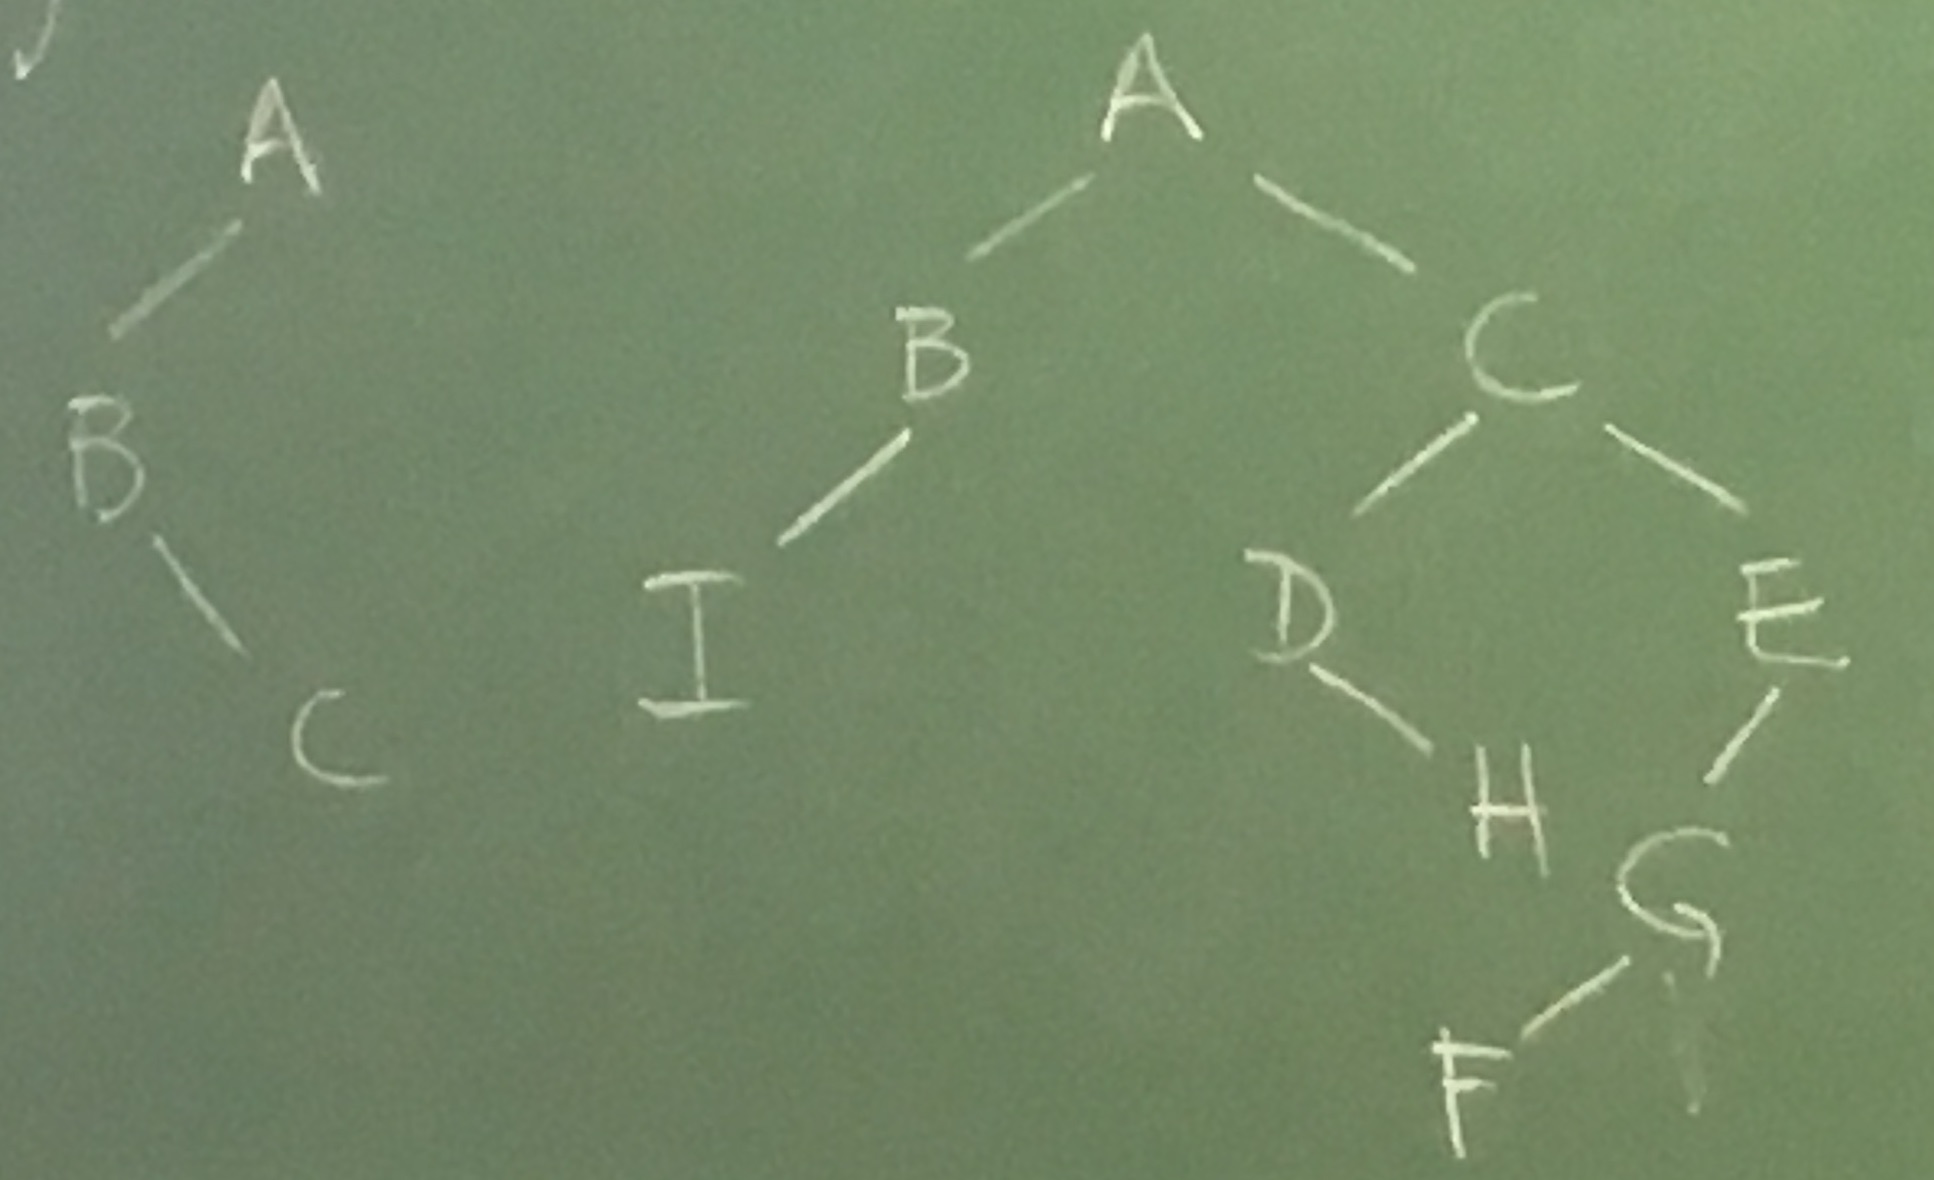 A
B
C
A
B C
I D E
H
G
F